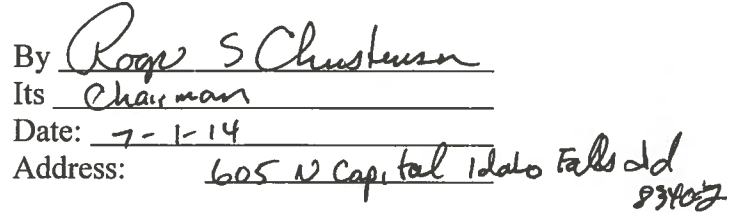 By Roger S Christensen
Its Chairman
Date: 7-1-14
Address: 605 N Capital Idaho Falls Id
83402